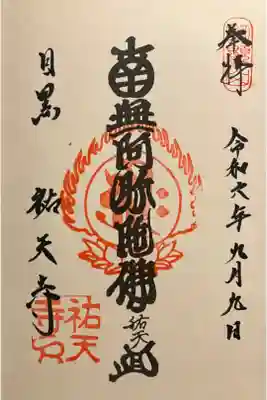 奉拝
令和六年九月九日
南無阿弥陀佛
祐天
目黒 祐天寺
祐天
寺印